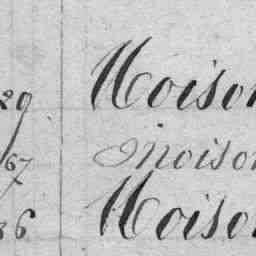 29 Moison
67 Moison
86 Moison